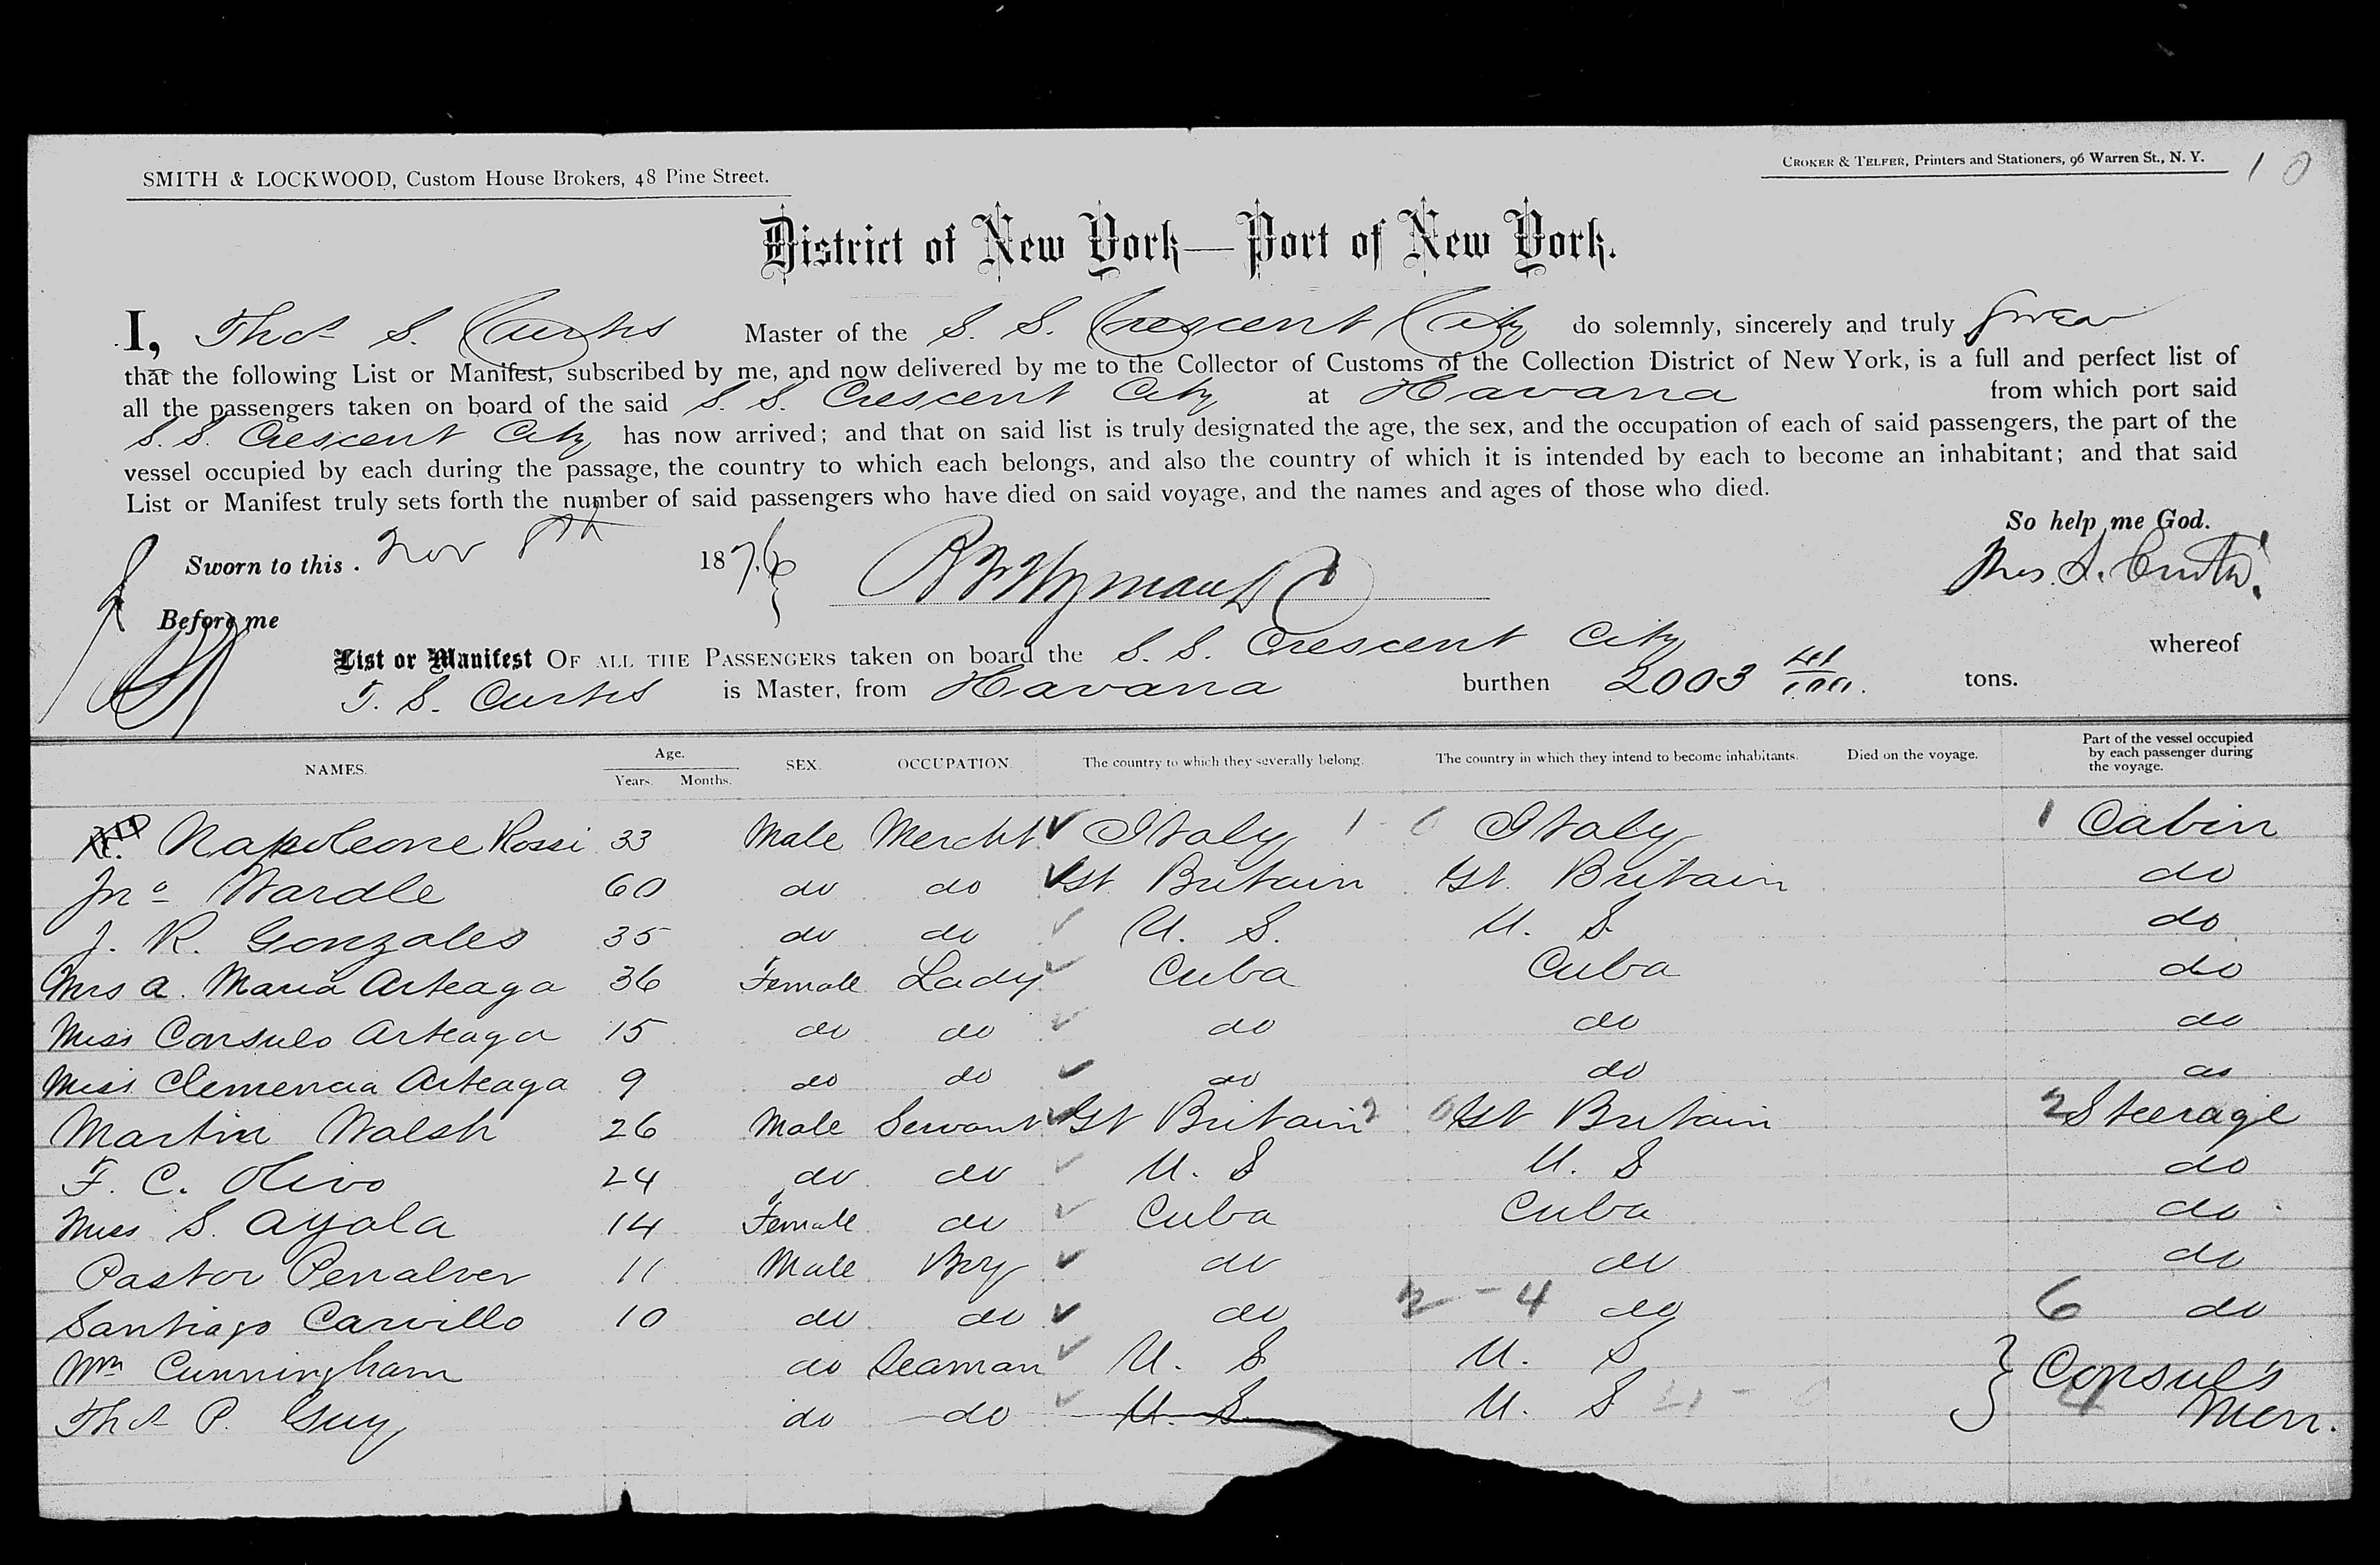 SMITH & LOCKWOOD, Custom House Brokers, 48 Pine Street.
CROKER & TELFER, Printers and Stationers, 96 Warren St., N. Y.
10
District of New York—Port of New York.
I, Thos S. Curtis Master of the S. S. Crescent City do solemnly, sincerely and truly swear
that the following List or Manifest, subscribed by me, and now delivered by me to the Collector of Customs of the Collection District of New York, is a full and perfect list of
all the passengers taken on board of the said S. S. Crescent City at Havana from which port said
S. S. Crescent City has now arrived; and that on said list is truly designated the age, the sex, and the occupation of each of said passengers, the part of the
vessel occupied by each during the passage, the country to which each belongs, and also the country of which it is intended by each to become an inhabitant; and that said
List or Manifest truly sets forth the number of said passengers who have died on said voyage, and the names and ages of those who died.
So help me God.
Sworn to this Nov 8th 1876
Thos. S. Curtis
Before me
List or Manifest OF ALL THE PASSENGERS taken on board the S. S. Crescent City whereof
T. S. Curtis is Master, from Havana burthen 2003 41/100 tons.
NAMES. Age. Years. Months. SEX. OCCUPATION. The country to which they severally belong. The country in which they intend to become inhabitants. Died on the voyage. Part of the vessel occupied by each passenger during the voyage.
Napoleone Rossi 33 Male Mercht ✓ Italy 1 - 0 Italy 1 Cabin
Jno Wardle 60 do do ✓ Gt. Britain Gt. Britain do
J. R. Gonzales 35 do do ✓ U. S. U. S. do
Mrs A. Maria Arteaga 36 Female Lady ✓ Cuba Cuba do
Miss Consulo Arteaga 15 do do ✓ do do do
Miss Clemencia Arteaga 9 do do ✓ do do do
Martin Walsh 26 Male Servant ✓ Gt Britain 2 0 Gt Britain 2 Steerage
F. C. Olivo 24 do do ✓ U. S U. S do
Miss S. Ayala 14 Female do ✓ Cuba Cuba do
Pastor Penalver 11 Male Boy ✓ do do do
Santiago Carvillo 10 do do ✓ do 2 - 4 do 6 do
Wm Cunningham do Seaman ✓ U. S U. S } Consul's
Thos P. Guy do do ✓ U. S U. S 4 Men.